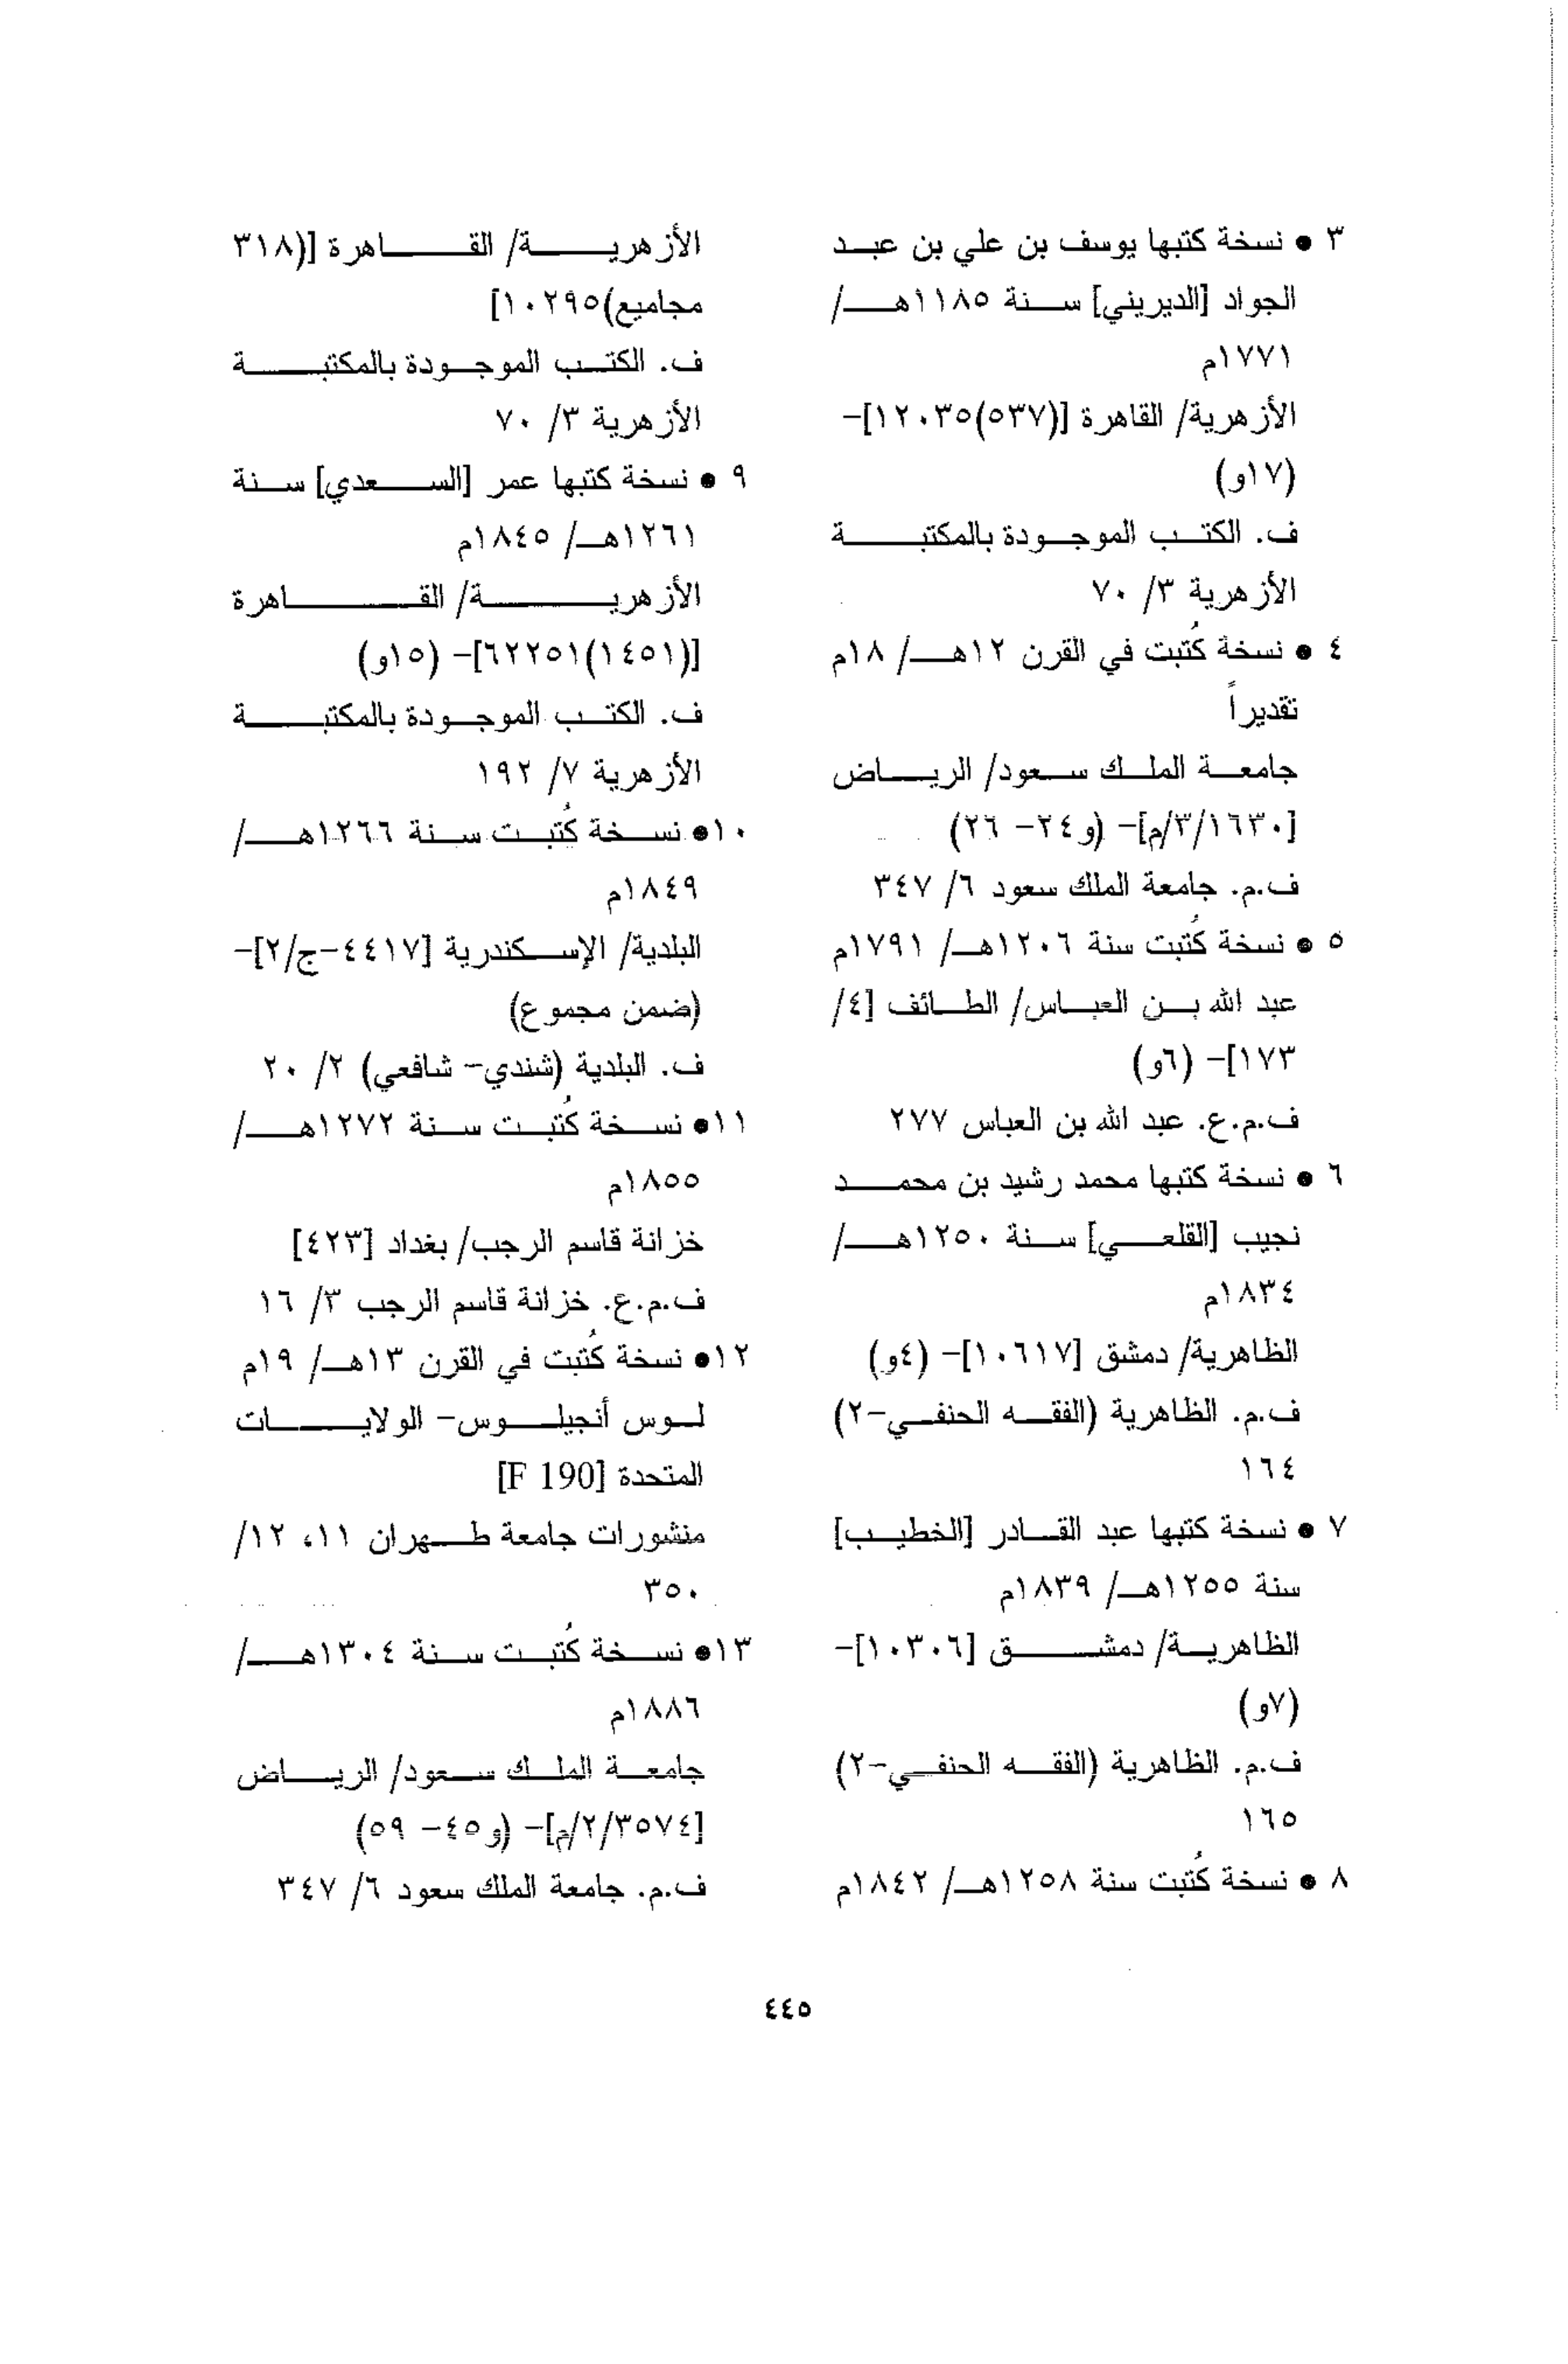 ٣ ● نسخة كتبها يوسف بن علي بن عبد
الجواد [الديريني] سنة ١١٨٥هـ/
١٧٧١م
الأزهرية/ القاهرة [(٥٣٧)١٢٠٣٥]-
(١٧و)
ف. الكتب الموجودة بالمكتبة
الأزهرية ٣/ ٧٠
٤ ● نسخة كُتبت في القرن ١٢هـ/ ١٨م
تقديراً
جامعة الملك سعود/ الرياض
[١٦٣٠/٣/م]- (و٢٤- ٢٦)
ف.م. جامعة الملك سعود ٦/ ٣٤٧
٥ ● نسخة كُتبت سنة ١٢٠٦هـ/ ١٧٩١م
عبد الله بن العباس/ الطائف [٤/
١٧٣]- (٦و)
ف.م.ع. عبد الله بن العباس ٢٧٧
٦ ● نسخة كتبها محمد رشيد بن محمد
نجيب [القلعي] سنة ١٢٥٠هـ/
١٨٣٤م
الظاهرية/ دمشق [١٠٦١٧]- (٤و)
ف.م. الظاهرية (الفقه الحنفي-٢)
١٦٤
٧ ● نسخة كتبها عبد القادر [الخطيب]
سنة ١٢٥٥هـ/ ١٨٣٩م
الظاهرية/ دمشق [١٠٣٠٦]-
(٧و)
ف.م. الظاهرية (الفقه الحنفي-٢)
١٦٥
٨ ● نسخة كُتبت سنة ١٢٥٨هـ/ ١٨٤٢م
الأزهرية/ القاهرة [(٣١٨
مجاميع)١٠٢٩٥]
ف. الكتب الموجودة بالمكتبة
الأزهرية ٣/ ٧٠
٩ ● نسخة كتبها عمر [السعدي] سنة
١٢٦١هـ/ ١٨٤٥م
الأزهرية/ القاهرة
[(١٤٥١)٦٢٢٥١]- (١٥و)
ف. الكتب الموجودة بالمكتبة
الأزهرية ٧/ ١٩٢
١٠● نسخة كُتبت سنة ١٢٦٦هـ/
١٨٤٩م
البلدية/ الإسكندرية [٤٤١٧-ج/٢]-
(ضمن مجموع)
ف. البلدية (شندي- شافعي) ٢/ ٢٠
١١● نسخة كُتبت سنة ١٢٧٢هـ/
١٨٥٥م
خزانة قاسم الرجب/ بغداد [٤٢٣]
ف.م.ع. خزانة قاسم الرجب ٣/ ١٦
١٢● نسخة كُتبت في القرن ١٣هـ/ ١٩م
لوس أنجيلوس- الولايات
المتحدة [F 190]
منشورات جامعة طهران ١١، ١٢/
٣٥٠
١٣● نسخة كُتبت سنة ١٣٠٤هـ/
١٨٨٦م
جامعة الملك سعود/ الرياض
[٣٥٧٤/٢/م]- (و٤٥- ٥٩)
ف.م. جامعة الملك سعود ٦/ ٣٤٧
٤٤٥